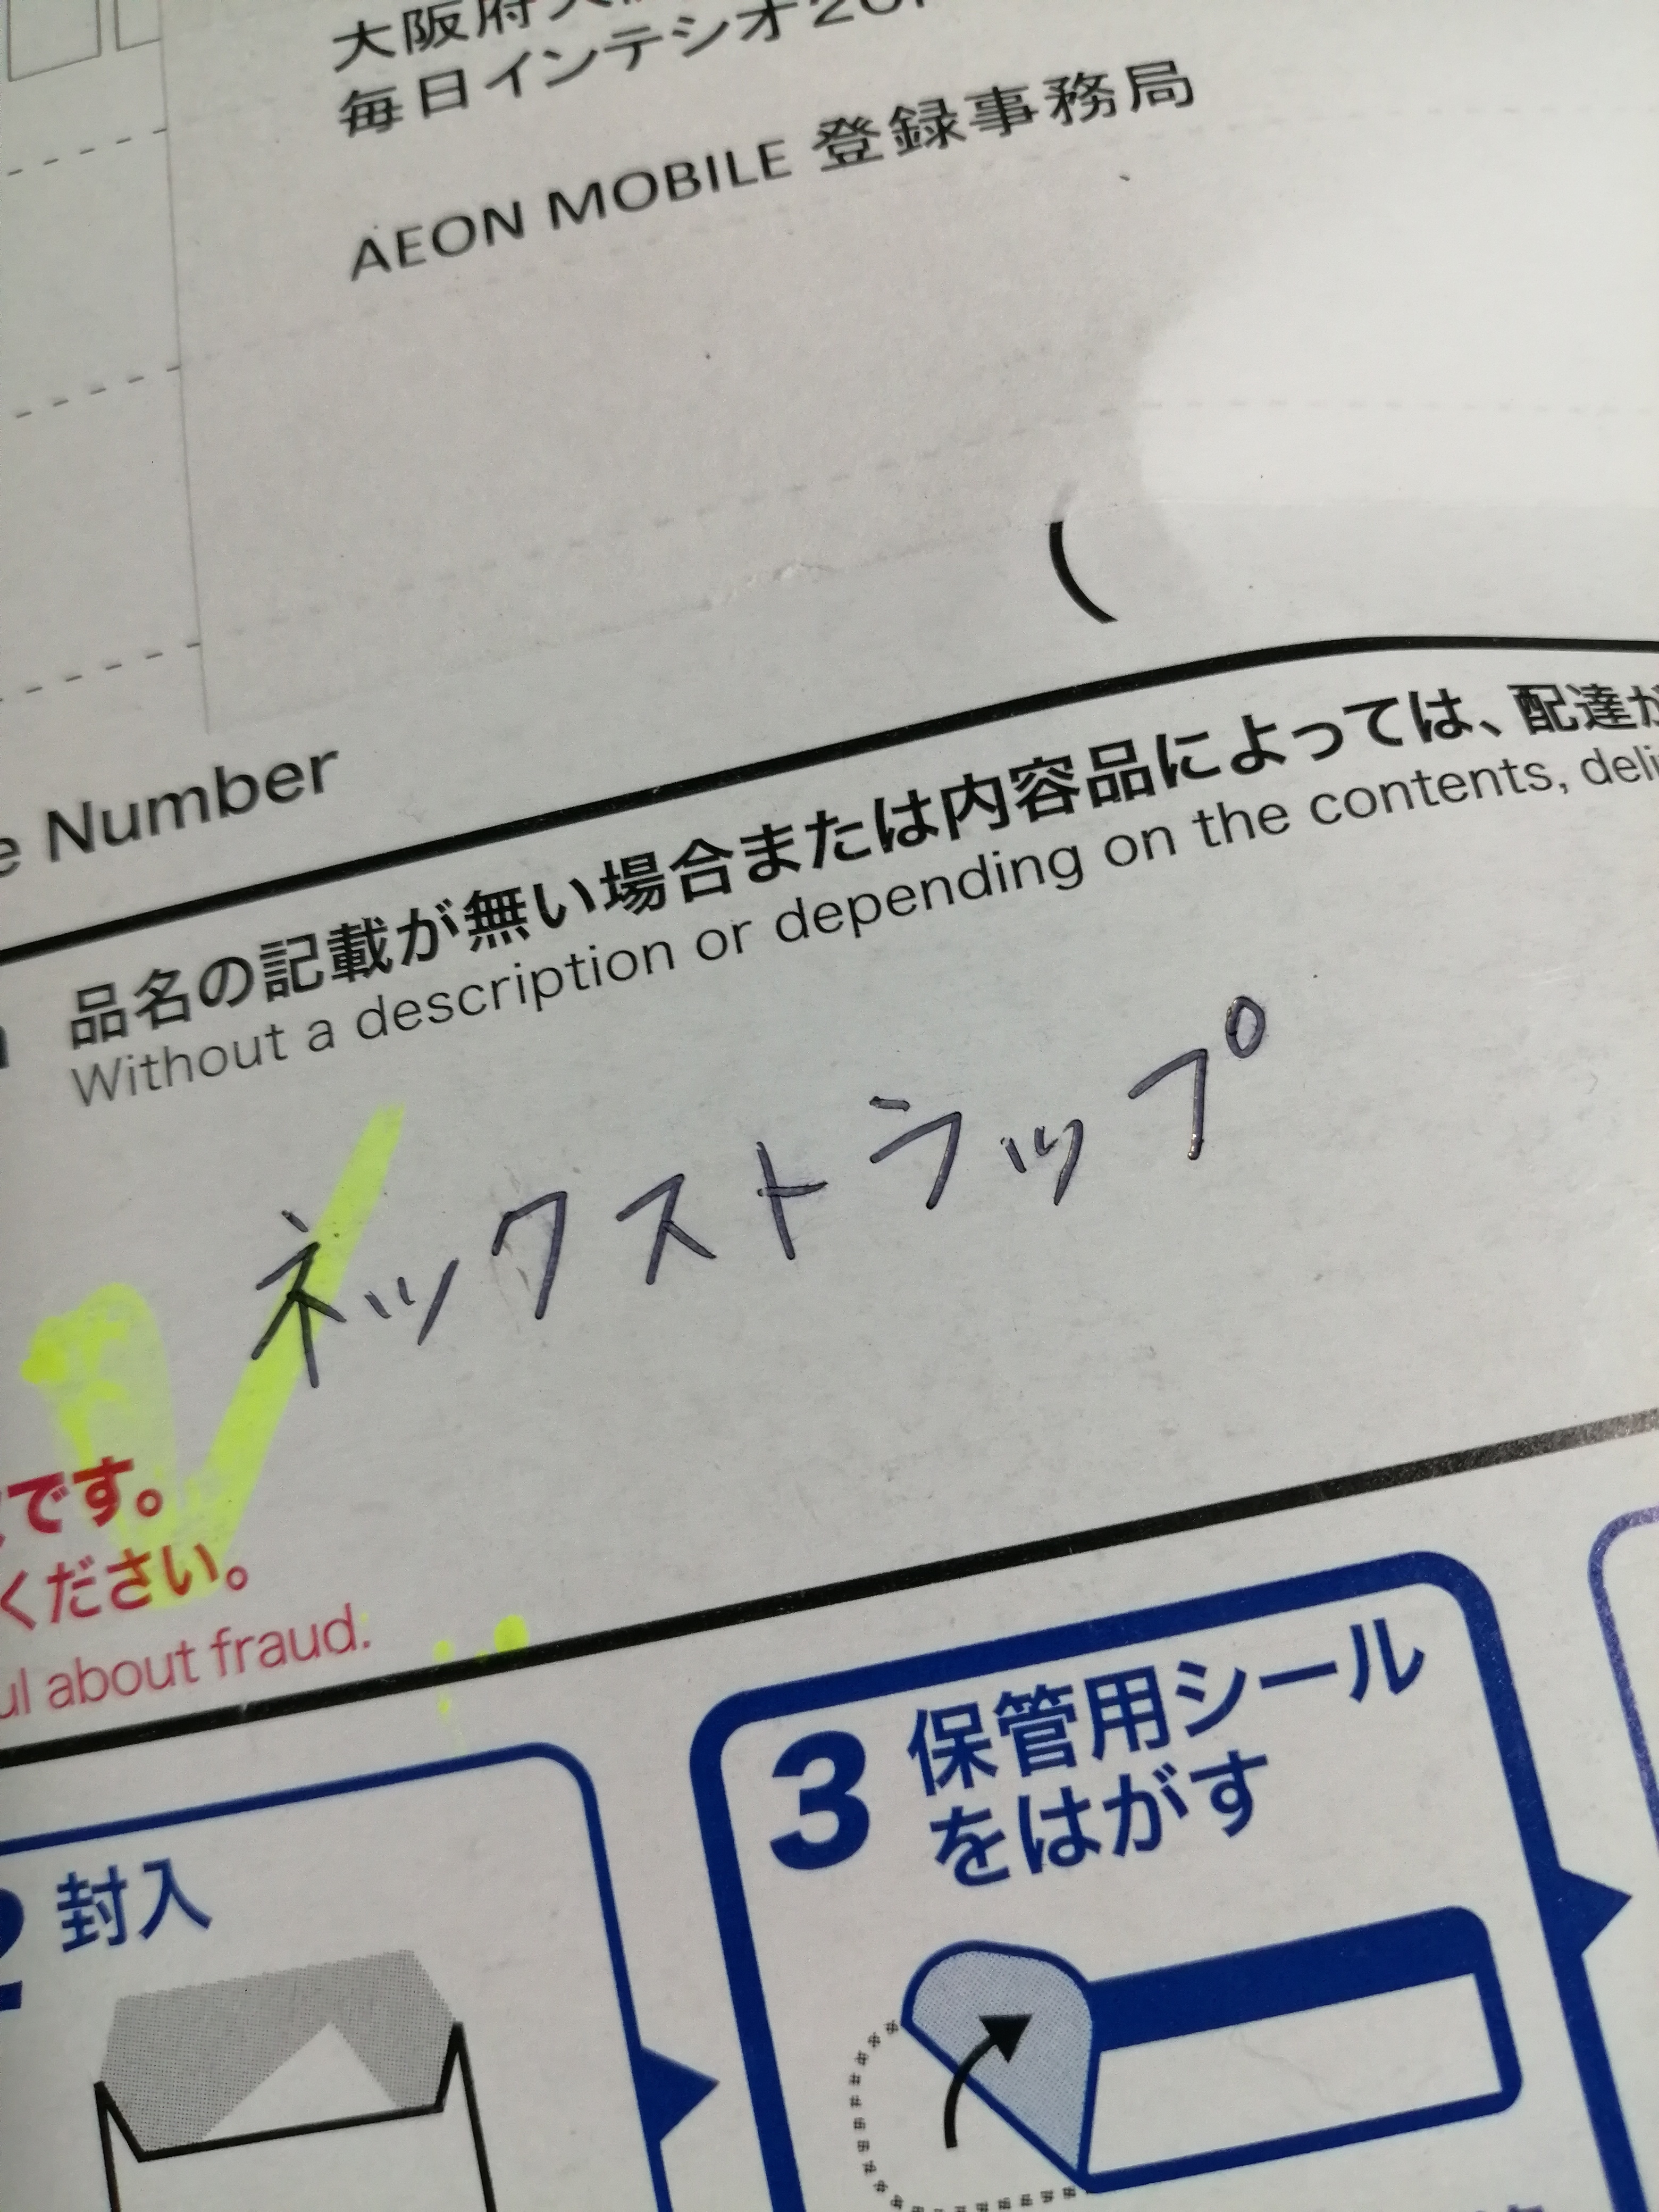 大阪府大
毎日インテシオ20F
AEON MOBILE 登録事務局
(
e Number
品名の記載が無い場合または内容品によっては、配達が
Without a description or depending on the contents, deli
ネックストラップ
です。
ください。
ul about fraud.
2 封入
3 保管用シール
をはがす